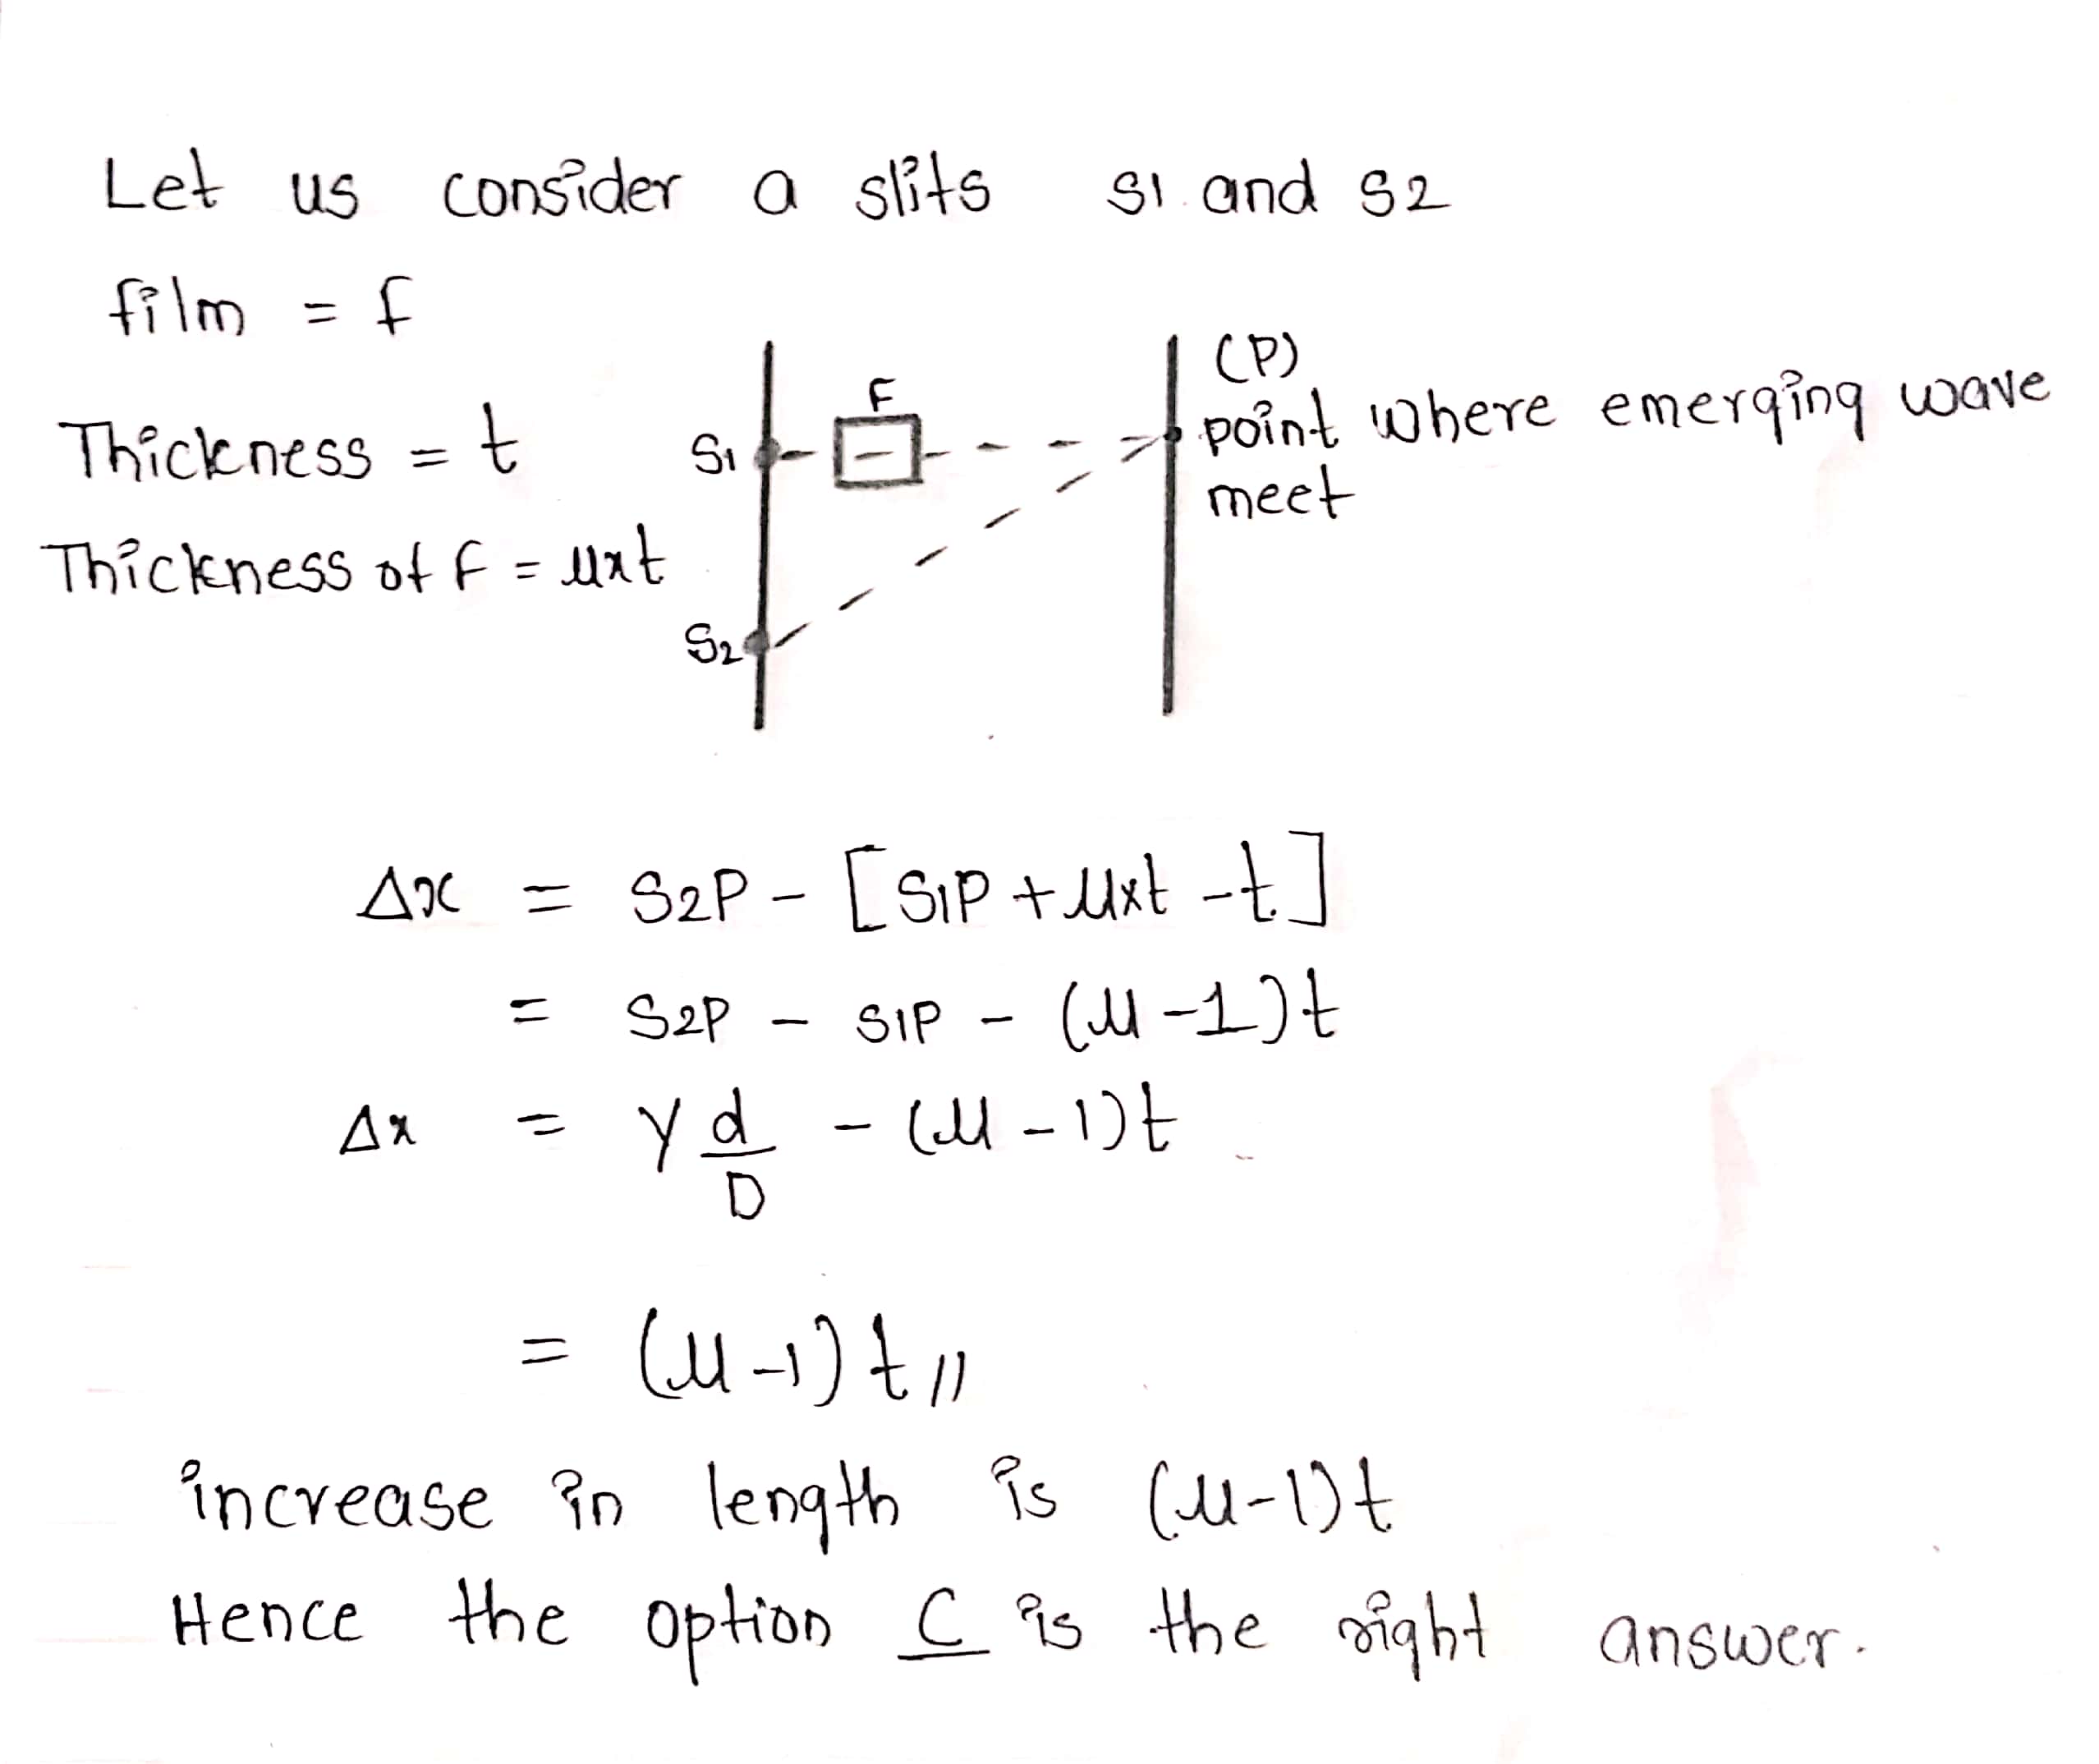 Let us consider a slits S1 and S2
film = f
Thickness = t
Thickness of f = μxt
F
S1
S2
(P)
point where emerging wave
meet
Δx = S2P - [S1P + μxt - t]
= S2P - S1P - (μ-1)t
Δx = y d/D - (μ-1)t
= (μ-1)t //
increase in length is (μ-1)t
Hence the option C is the right answer.